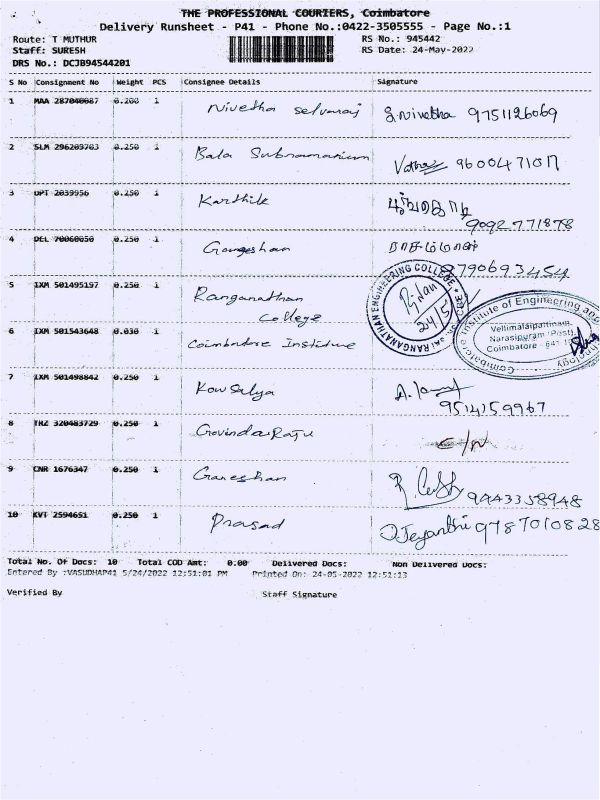 THE PROFESSIONAL COURIERS, Coimbatore
Delivery Runsheet - P41 - Phone No.:0422-3505555 - Page No.:1
Route: T MUTHUR RS No.: 945442
Staff: SURESH RS Date: 24-May-2022
DRS No.: DCJB94544201
S No Consignment No Weight PCS Consignee Details Signature
1 MAA 287040087 0.200 1 Nivetha Selvaraj S.Nivetha 9751126069
2 SLM 296209703 0.250 1 Bala Subramanium 9600471017
3 UPT 2039956 0.250 1 Karthik
9092771878
4 DEL 70060050 0.250 1 Gangeshan ராசம்மாள்
9790693454
5 IXM 501495197 0.250 1 Ranganathan
College
ENGINEERING COLLEGE
24/5
6 IXM 501543648 0.030 1 Coimbatore Institute
Coimbatore Institute of Engineering and
Vellimalaipattinam,
Narasipuram (Post)
Coimbatore - 641
7 IXM 501498842 0.250 1 Kowsalya
9514159967
8 TRZ 320483729 0.250 1 GovindaRaju
9 CNR 1676347 0.250 1 Ganeshan 9943358948
10 KVT 2594651 0.250 1 Prasad Jeyanthi 9787010828
Total No. Of Docs: 10 Total COD Amt: 0.00 Delivered Docs: Non Delivered Docs:
Entered By :VASUDHAP41 5/24/2022 12:51:01 PM Printed On: 24-05-2022 12:51:13
Verified By Staff Signature